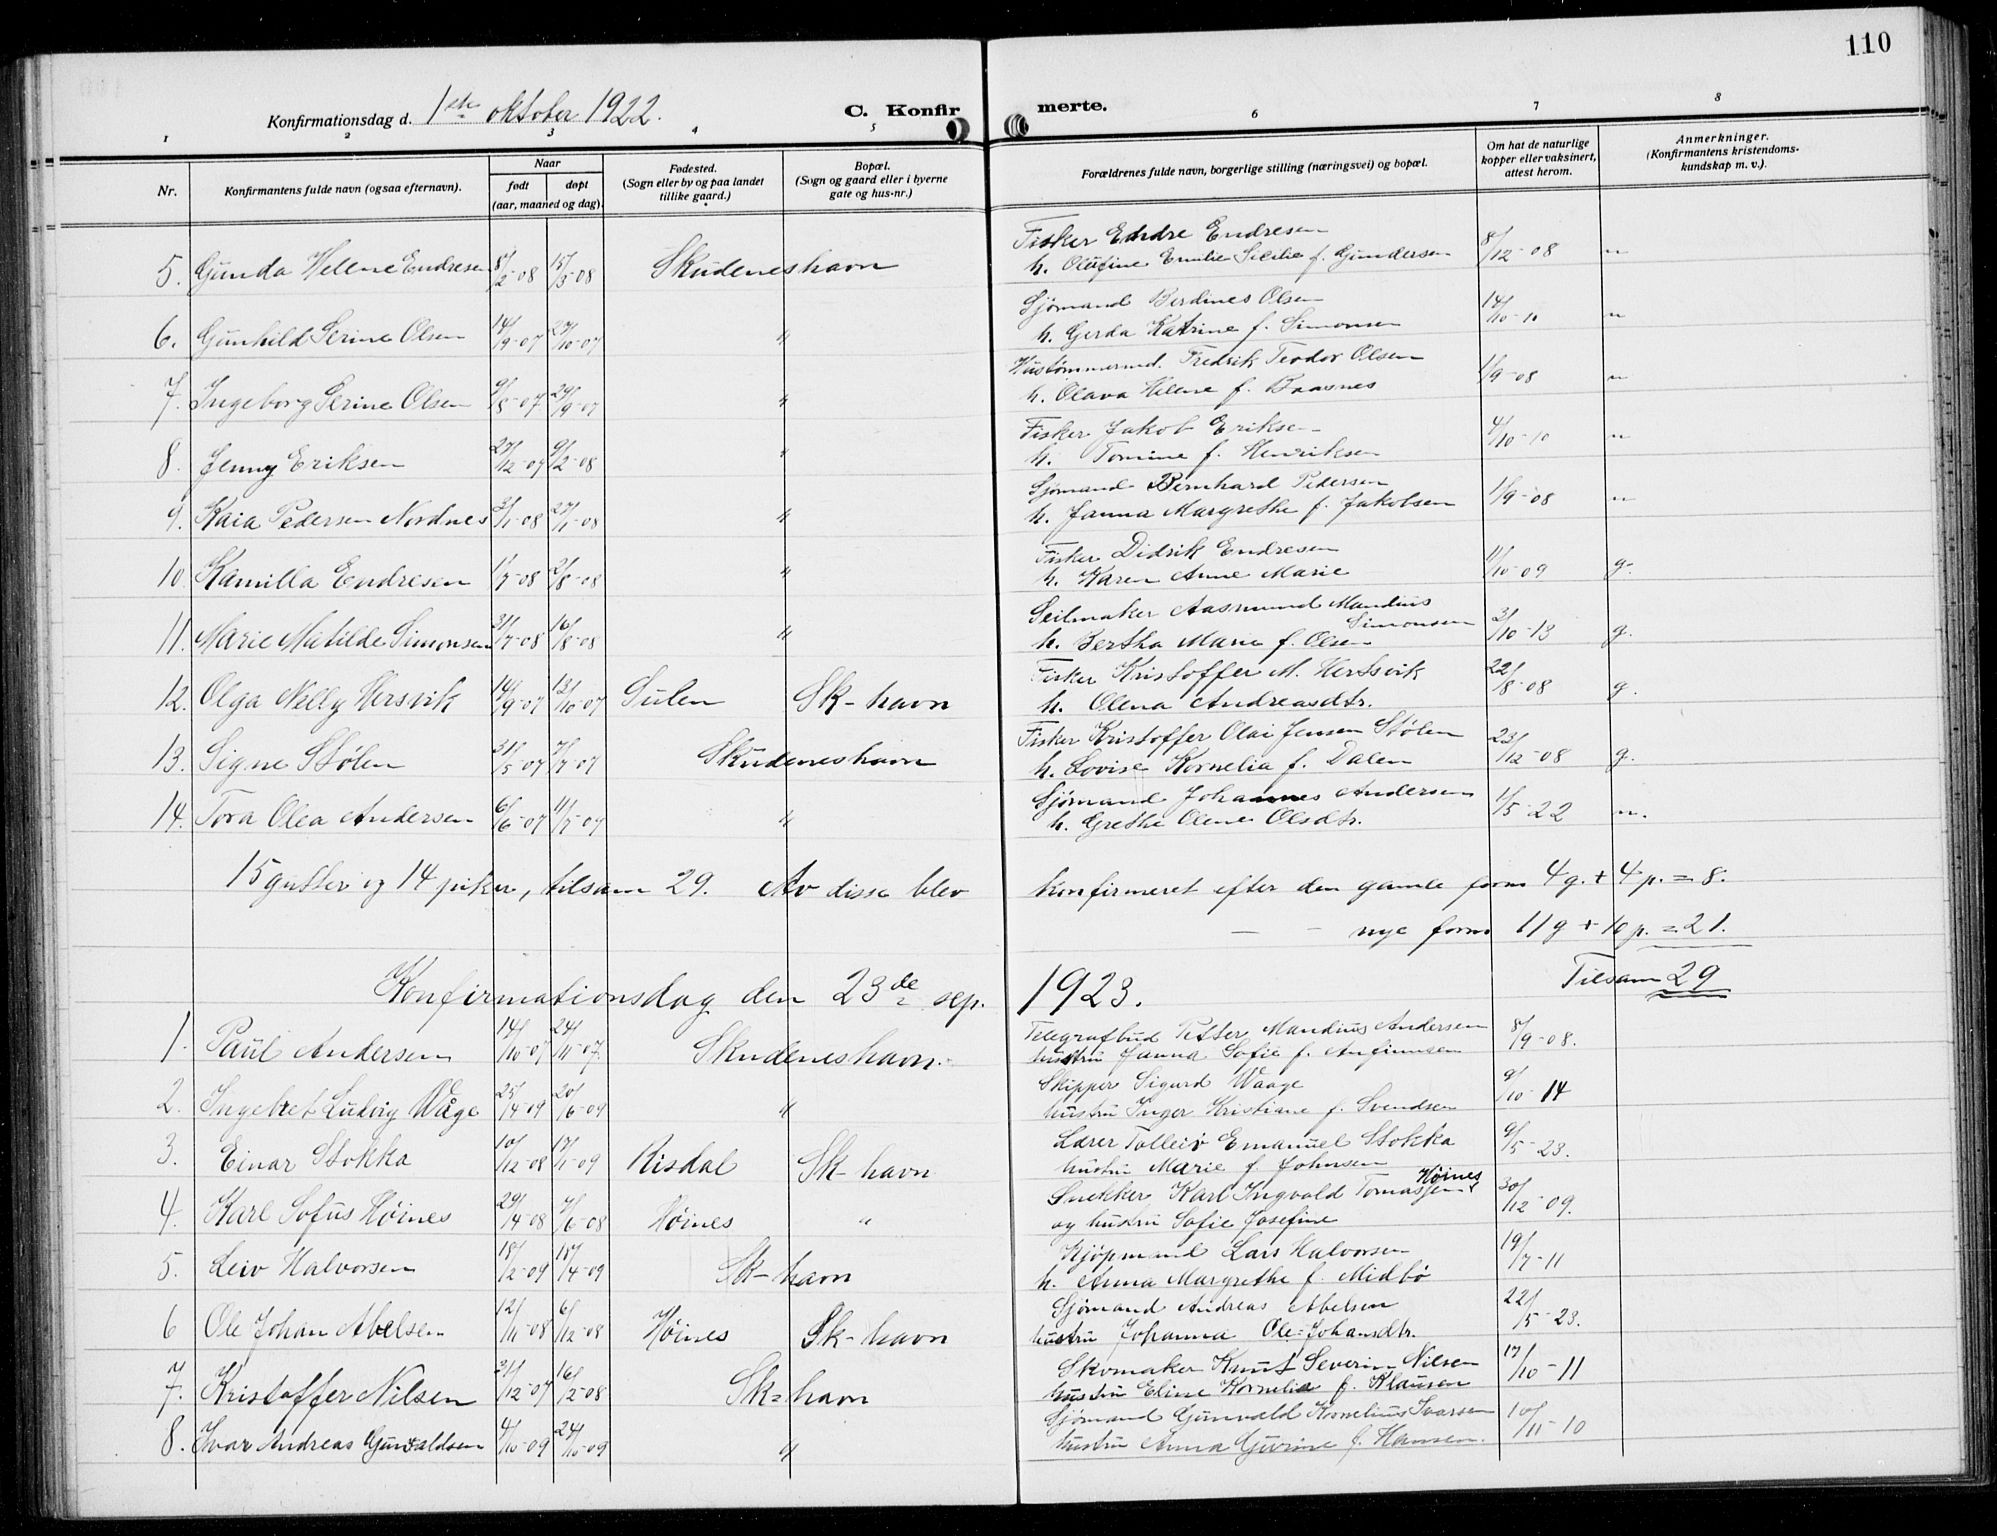 110
Konfirmationsdag d. 1ste oktober 1922.
C. Konfirmerte.
1 2 3 4 5 6 7 8
Nr.
Konfirmantens fulde navn (ogsaa efternavn).
Naar
født døpt
(aar, maaned og dag).
Fødested.
(Sogn eller by og paa landet
tillike gaard.)
Bopæl.
(Sogn og gaard eller i byerne
gate og hus-nr.)
Forældrenes fulde navn, borgerlige stilling (næringsvei) og bopæl.
Om hat de naturlige
kopper eller vaksinert,
attest herom.
Anmerkninger.
(Konfirmantens kristendoms-
kundskap m. v.).
Fisker Endre Endresen
5. Gunda Helene Endresen 8/2-08 15/3-08 Skudeneshavn h. Olufine Emilie Sicilie f. Gundersen 8/12-08 n
Sjømand Berdines Olsen
6. Gunhild Serine Olsen 14/9-07 27/10-07 " h. Gerda Katrine f. Simonsen 14/10-10 n
Hustømmermd. Fredrik Teodor Olsen
7. Ingeborg Serine Olsen 9/8-07 29/9-07 " h. Olava Helene f. Baasnes 1/9-08 n
Fisker Jakob Eriksen
8. Jenny Eriksen 27/12-07 9/2-08 " h. Tomine f. Henriksen 4/10-10 n
Sjømand Bernhard Pedersen
9. Kaia Pedersen Nordnes 3/1-08 27/1-08 " h. Janna Margrethe f. Jakobsen 1/9-08 n
Fisker Didrik Endresen
10. Kamilla Endresen 1/7-08 2/8-08 " h. Karen Anne Marie 11/10-09 g.
Seilmaker Aasmund Mandius
Simonsen
11. Marie Matilde Simonsen 31/7-08 16/8-08 " h. Bertha Marie f. Olsen 3/10-13 g.
Fisker Kristoffer M. Hertsvik
12. Olga Nelly Hersvik 14/9-07 13/10-07 Sulen Sk-havn h. Olena Andreasdtr. 22/8-08 g.
Fisker Kristoffer Olai Jensen Stølen
13. Signe Stølen 31/5-07 7/7-07 Skudeneshavn h. Lovise Kornelia f. Dalen 23/12-08 g.
Sjømand Johannes Andersen
14. Tora Olea Andersen 6/6-07 11/7-07 " h. Grethe Olene Olsdtr. 1/5-22 n.
15 gutter og 14 piker, tilsam 29. Av disse blev konfirmeret efter den gamle form 4 g. + 4 p. = 8.
- - nye form 11 g + 10 p. = 21.
Tilsam 29
Konfirmationsdag den 23de sep. 1923.
Telegrafbud Petter Mandius Andersen
1. Paul Andersen 14/10-07 24/11-07. Skudeneshavn. hustru Janna Sofie f. Anfinnsen 8/9-08.
Skipper Sigurd Waage
2. Ingebret Ludvig Wåge 25/4-09 20/6-09 " hustru Inger Kristiane f. Svendsen 9/10-14
Lærer Tolleiv Emanuel Stokka
3. Einar Stokka 10/12-08 17/1-09 Risdal Sk-havn hustru Marie f. Johnsen 9/5-23.
Snekker Karl Ingvald Tomassen Høines
4. Karl Sofus Høines 29/4-08 7/6-08 Høines " og hustru Sofie Josefine 30/12-09.
Kjøpmand Lars Halvorsen
5. Leiv Halvorsen 18/2-09 18/4-09 Sk-havn h. Anna Margrethe f. Midbö 19/7-11
Sjømand Andreas Abelsen
6 Ole Johan Abelsen 12/11-08 6/12-08 Høines Sk-havn hustru Johanna Ole-Johansdtr. 22/5-23.
Skomaker Knut Severin Nilsen
7. Kristoffer Nilsen 31/12-07 16/2-08 Sk=havn hustru Eline Kornelia f. Klausen 17/10-11
Sjømand Gunvald Kornelius Ivarsen
8. Ivar Andreas Gunvaldsen 4/10-09 24/10-09 " hustru Anna Gurine f. Hansen. 10/11-10